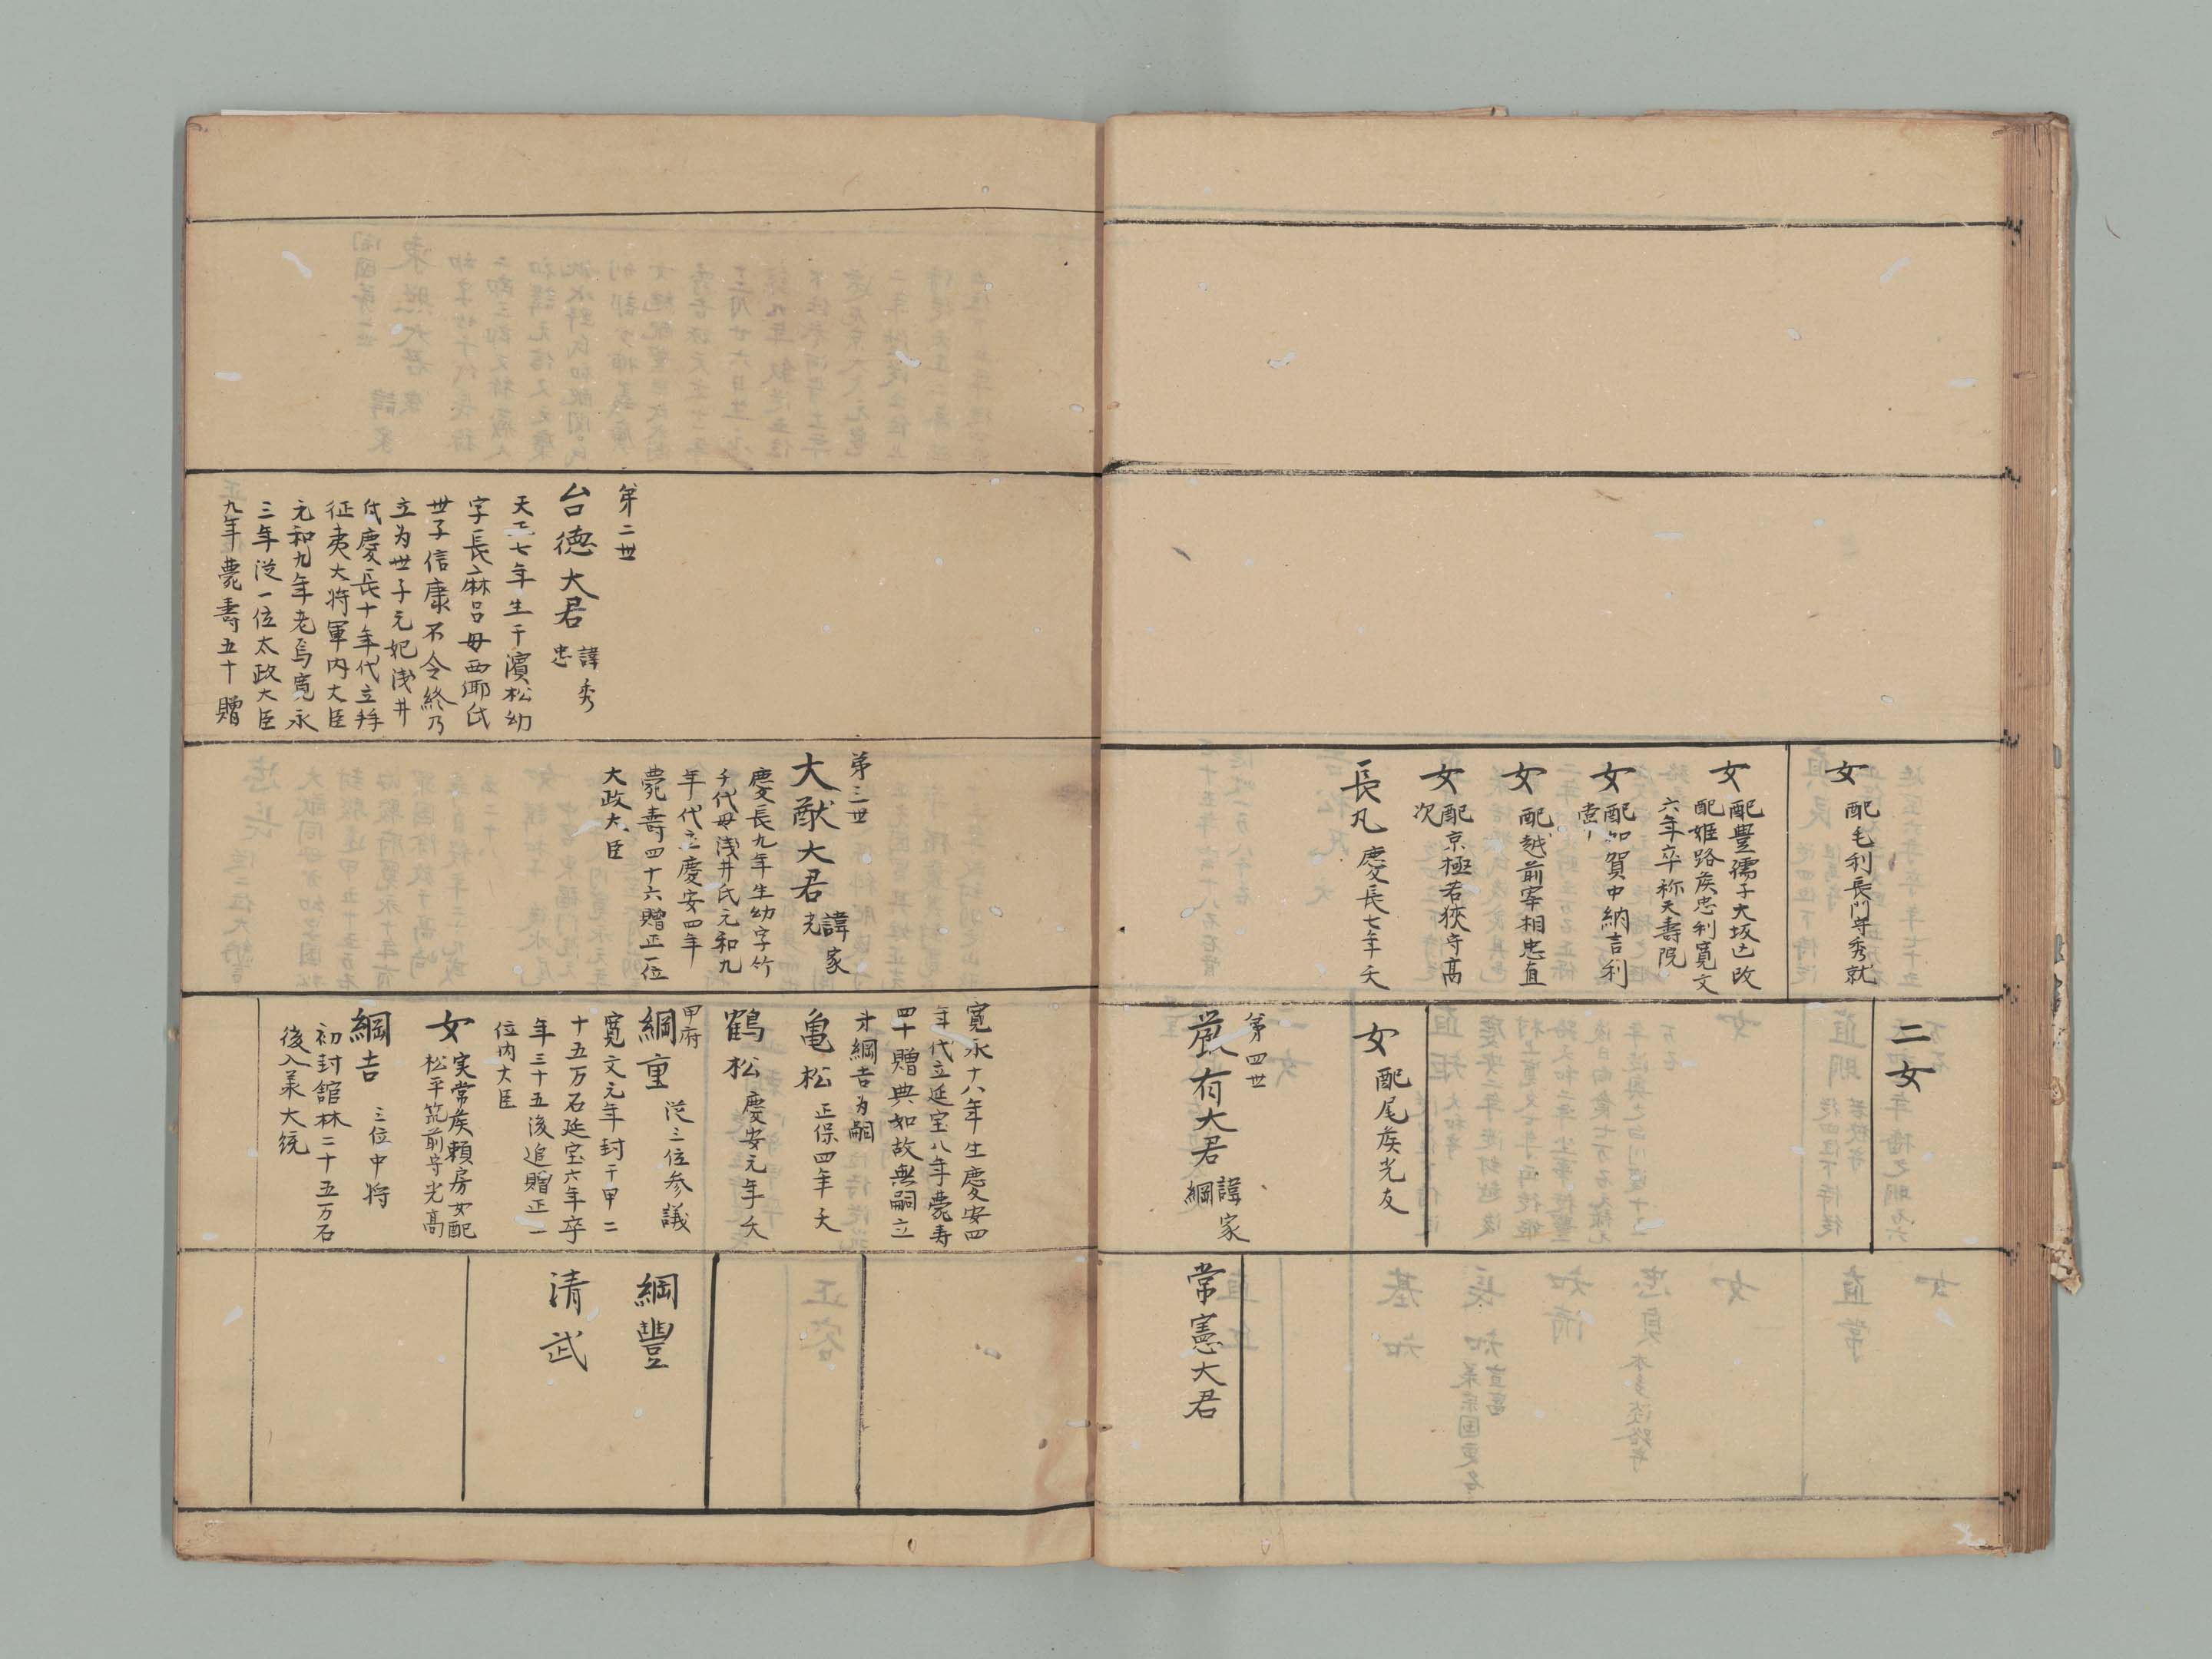 女
配毛利長門守秀就
女
配豊孺子大坂亡改
配姫路侯忠利寛文
六年卒称天壽院
女
配加賀中納言利
常
女
配越前宰相忠直
女
配京極若狹守高
次
長凡
慶長七年夭
二女
女
配尾侯光友
第四世
嚴有大君
諱家
綱
常憲大君
第二世
台德大君
諱秀
忠
天正七年生于濱松幼
字長麻呂母西鄉氏
世子信康不令終乃
立為世子元妃浅井
氏慶長十年代立拝
征夷大将軍内大臣
元和九年老焉寛永
三年従一位太政大臣
九年薨壽五十贈
第三世
大猷大君
諱家
光
慶長九年生幼字竹
千代母浅井氏元和九
年代立慶安四年
薨壽四十六贈正一位
大政大臣
寛永十八年生慶安四
年代立延宝八年薨寿
四十贈典如故無嗣立
弟綱吉为嗣
亀松
正保四年夭
鶴松
慶安元年夭
甲府
綱重
従三位参議
寛文元年封于甲二
十五万石延宝六年卒
年三十五後追贈正一
位内大臣
女
実常侯頼房女配
松平筑前守光高
綱吉
三位中将
初封館林二十五万石
後入美大統
綱豐
清武